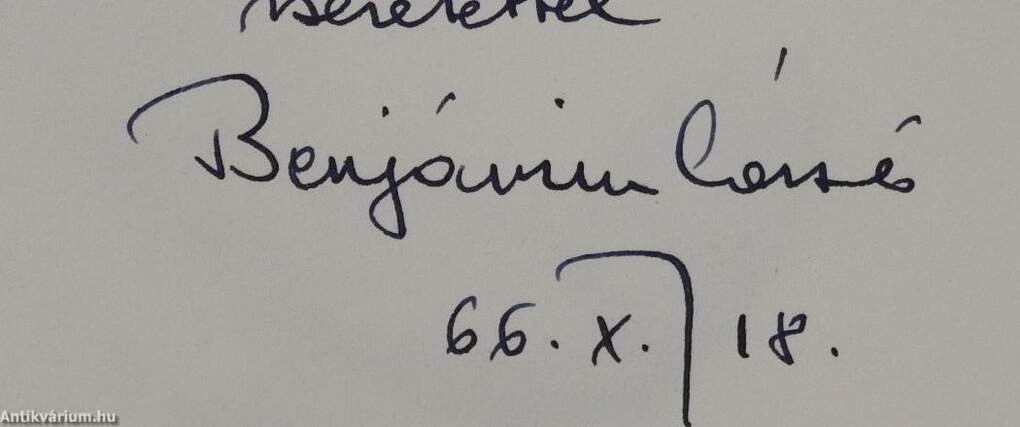 szeretettel
Benjámin László
66. X. 18.
Antikvárium.hu